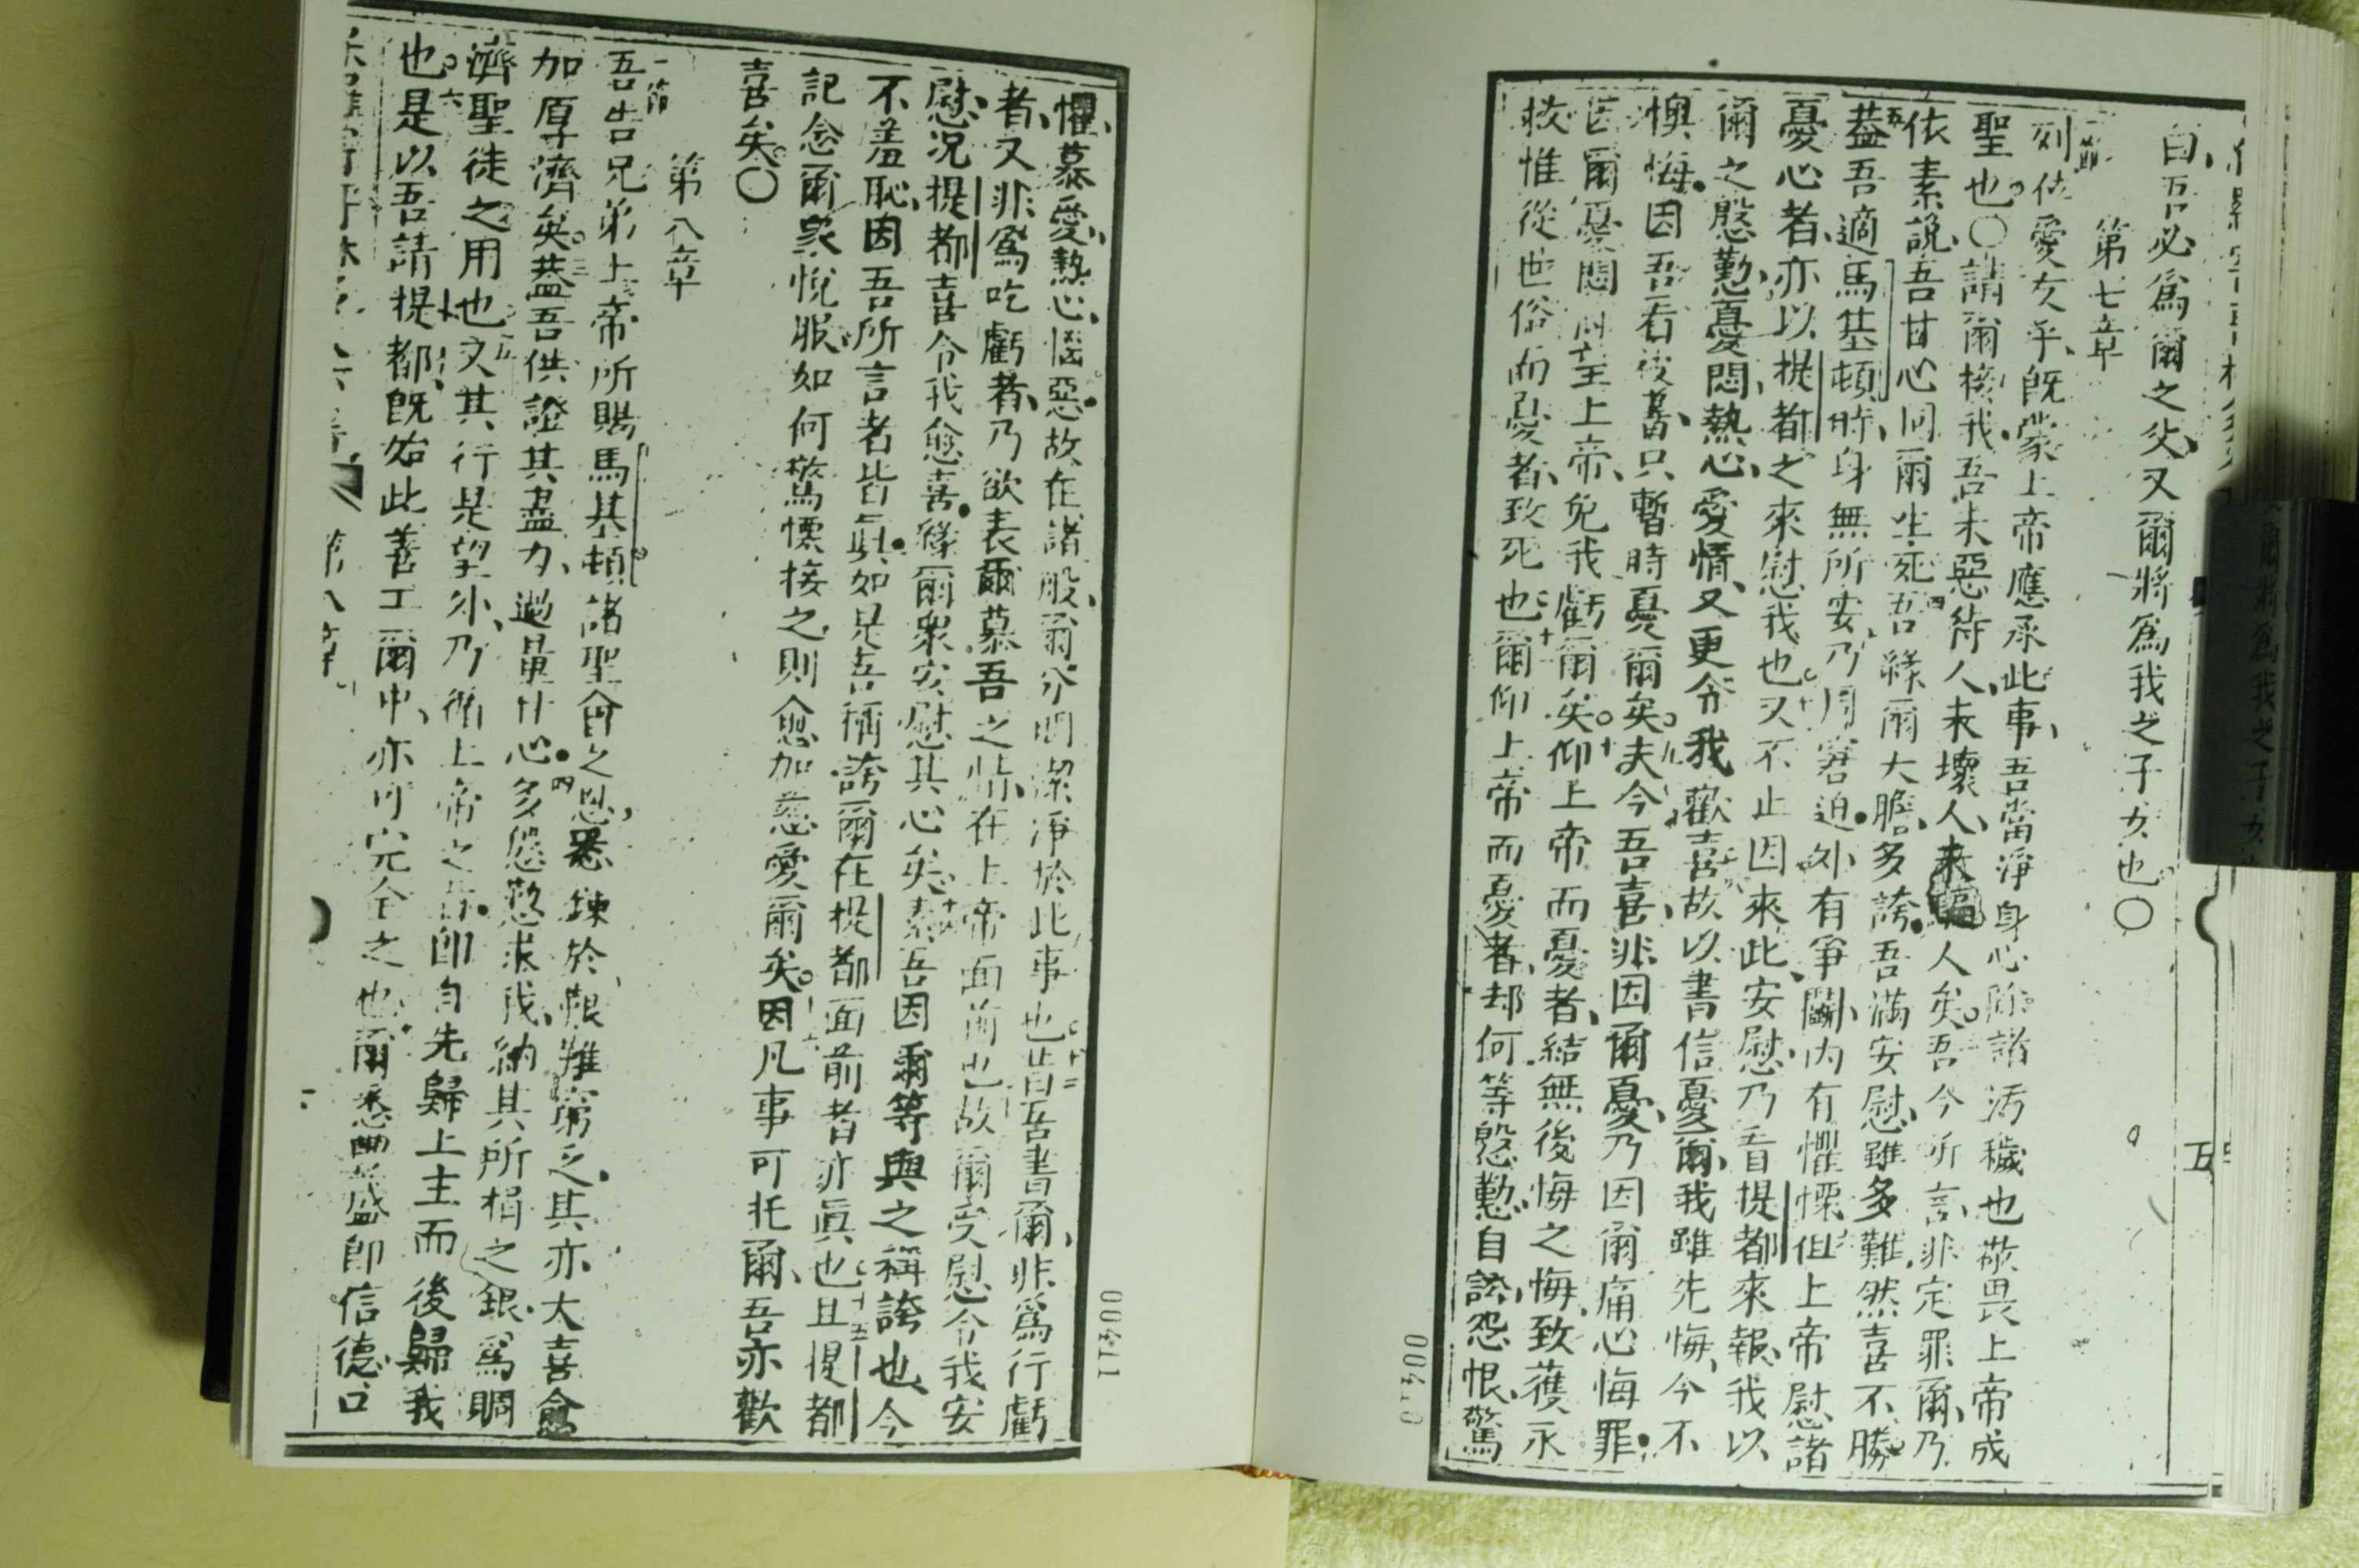 曰吾必為爾之父又爾將為我之子女也〇
第七章
一節
列位愛友乎既蒙上帝應承此事吾當淨身心除諸汚穢也敬畏上帝成
聖也〇請爾接我吾未惡待人未壞人未騙人矣吾今所言非定罪爾乃
依素說吾甘心同爾生死四吾緣爾大膽多誇吾滿安慰雖多難然喜不勝
五葢吾適馬基頓時身無所安乃周窘迫外有爭鬬內有懼慄但上帝慰諸
憂心者亦以提都之來慰我也又不止因來此安慰乃旨提都來報我以
爾之慇懃憂悶熱心愛情又更令我歡喜故以書信憂爾我雖先悔今不
懊悔因吾看彼書只暫時憂爾矣九夫今吾喜非因爾憂乃因爾痛心悔罪
因爾憂悶向至上帝免我虧爾矣十仰上帝而憂者結無後悔之悔致獲永
救惟從世俗而憂者致死也十一爾仰上帝而憂者却何等慇懃自訴怨恨驚
懼慕愛熱心惱惡故在諸般爾分明潔淨於此事也十二皆吾書爾非為行虧
者又非為吃虧者乃欲表爾慕吾之情在上帝面前也故爾受慰令我安
慰況提都喜令我愈喜緣爾衆安慰其心矣十四素吾因爾等與之稱誇也今
不羞恥因吾所言者皆眞如是吾稱誇爾在提都面前者亦眞也十五且提都
記念爾衆悅服如何驚慄接之則愈加慈愛爾矣因凡事可托爾吾亦歡
喜矣〇
第八章
一節
吾告兄弟上帝所賜馬基頓諸聖會之恩悉煉於艱難窮乏其亦大喜愈
加厚濟矣三葢吾供證其盡力過量甘心四多慇懃求我納其所捐之銀為賙
濟聖徒之用也五又其行是望外乃循上帝之旨卽自先歸上主而後歸我
也六是以吾請提都既始此善工爾中亦可完全之也爾悉豐盛卽信德口
第八章
五
00410
00411